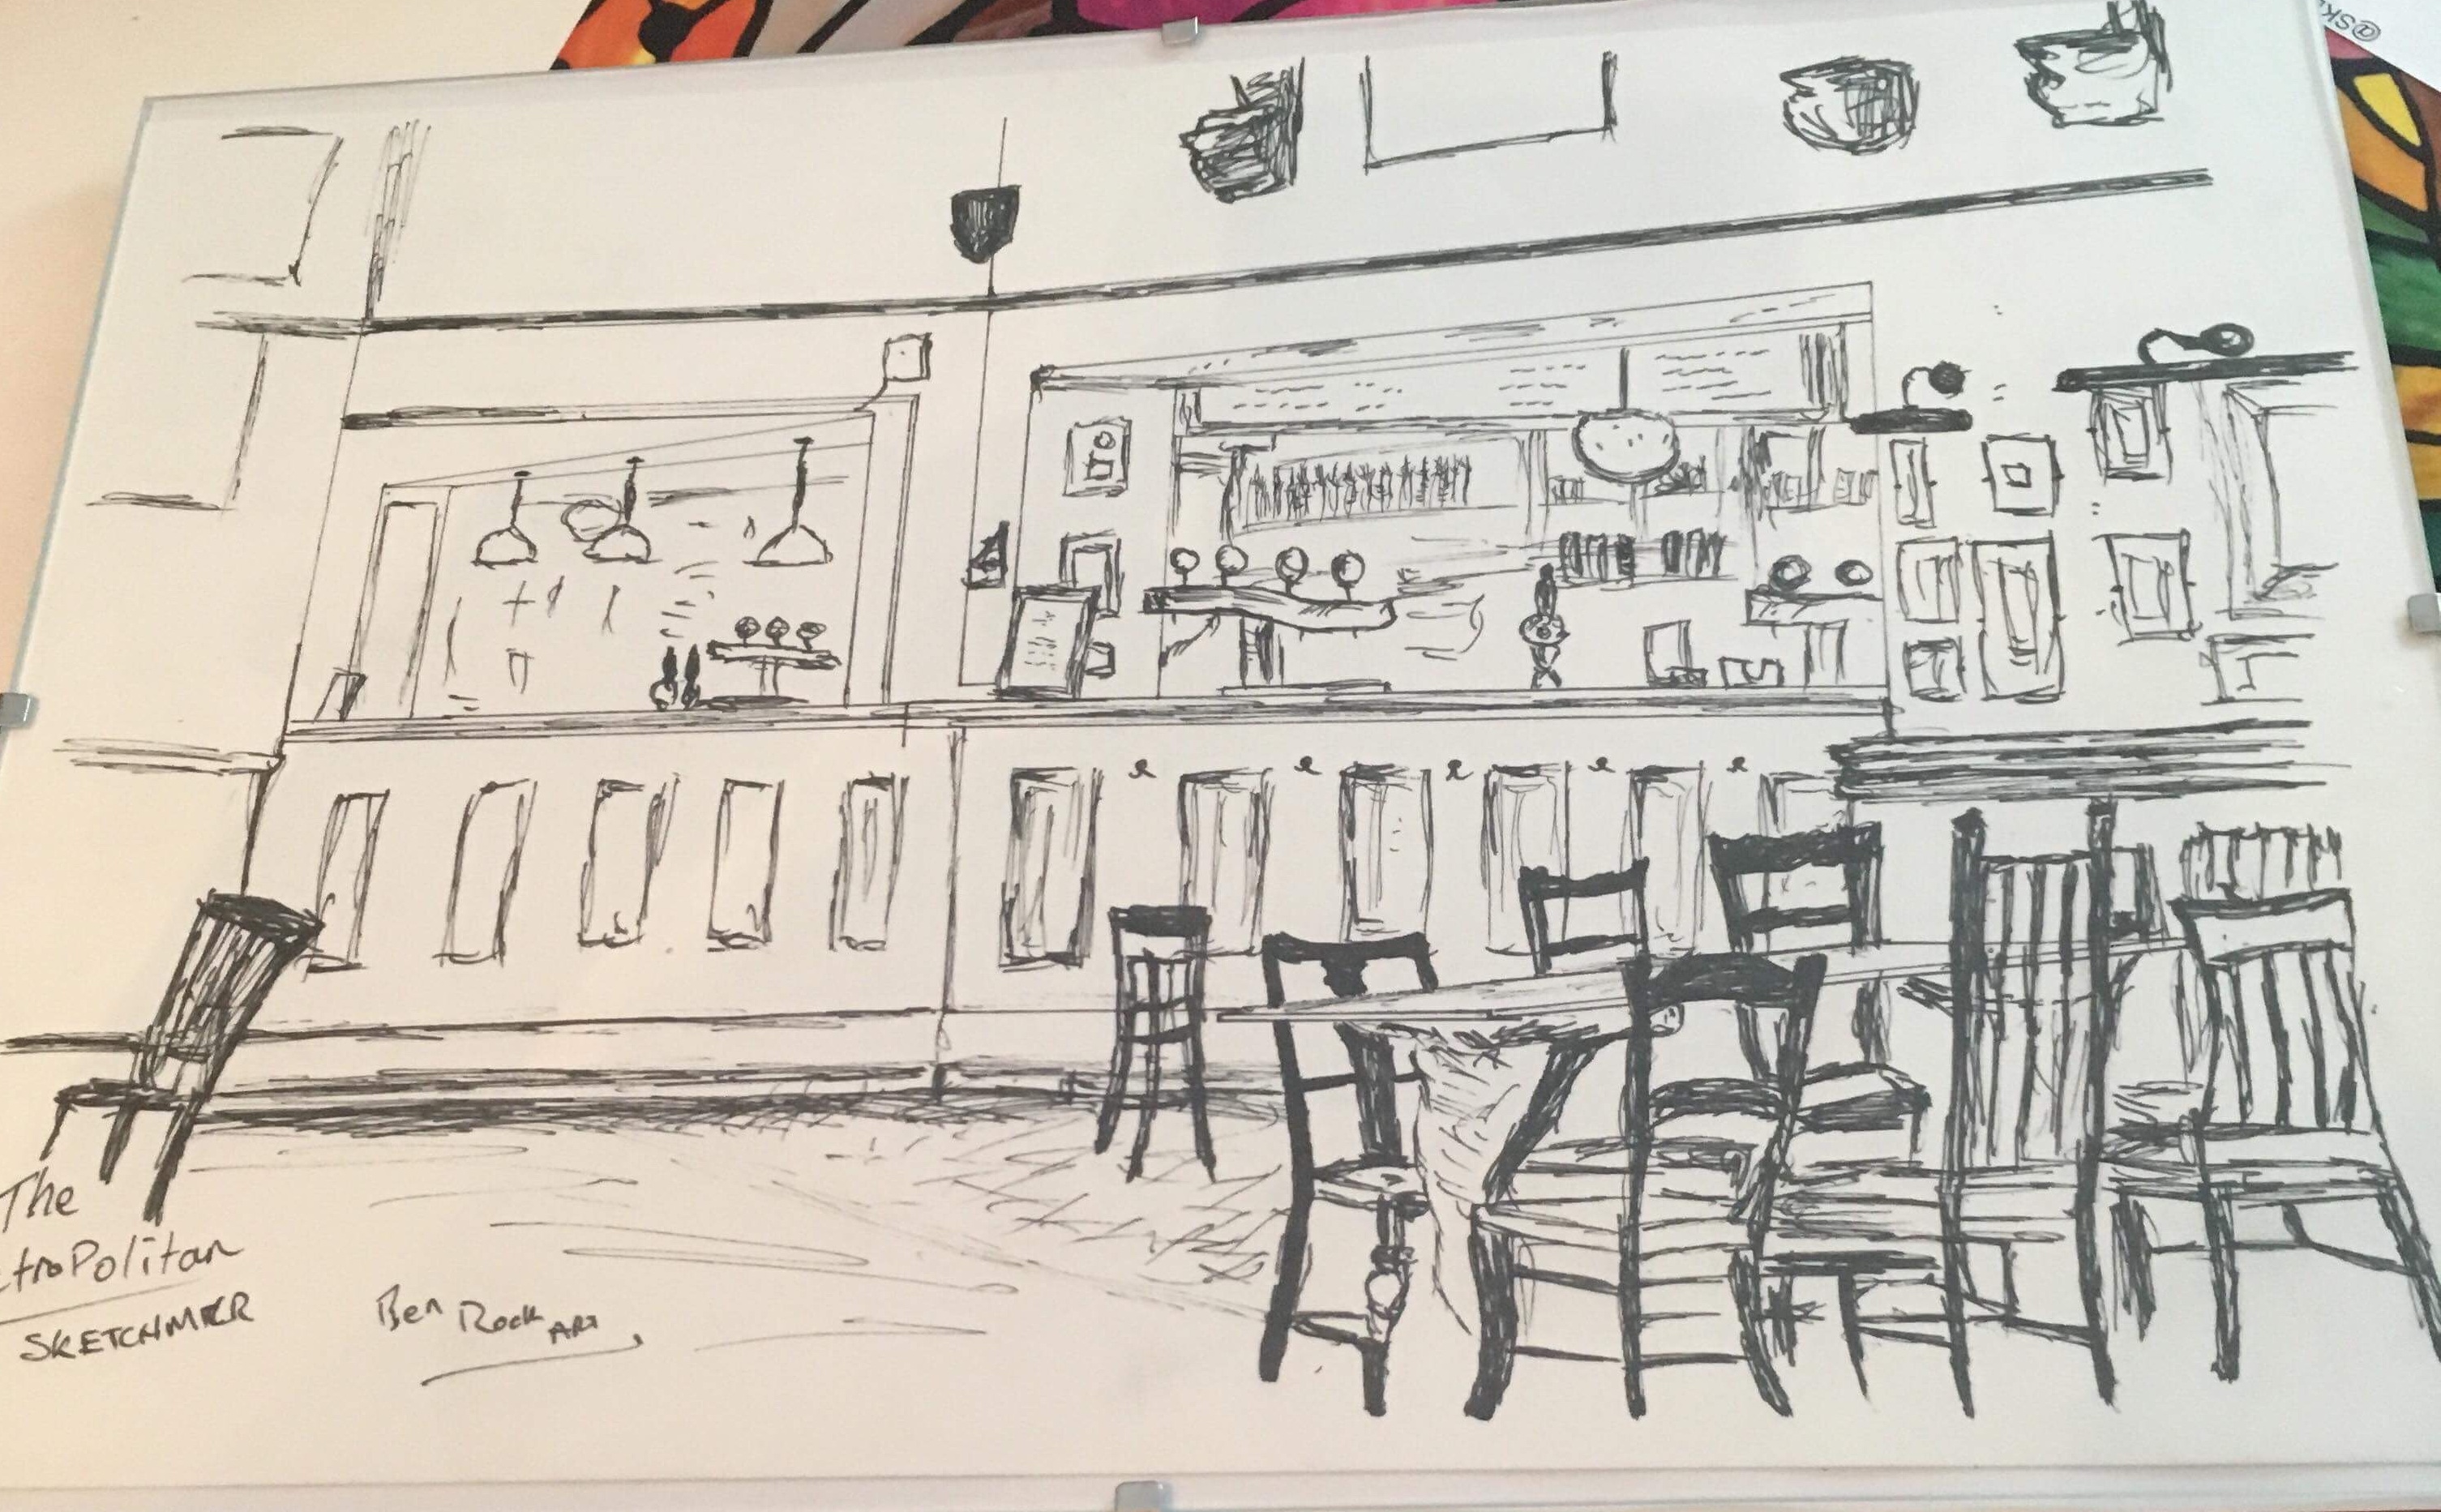 @SK
The
troPolitan
SKETCHMCR
Ben Rock ART